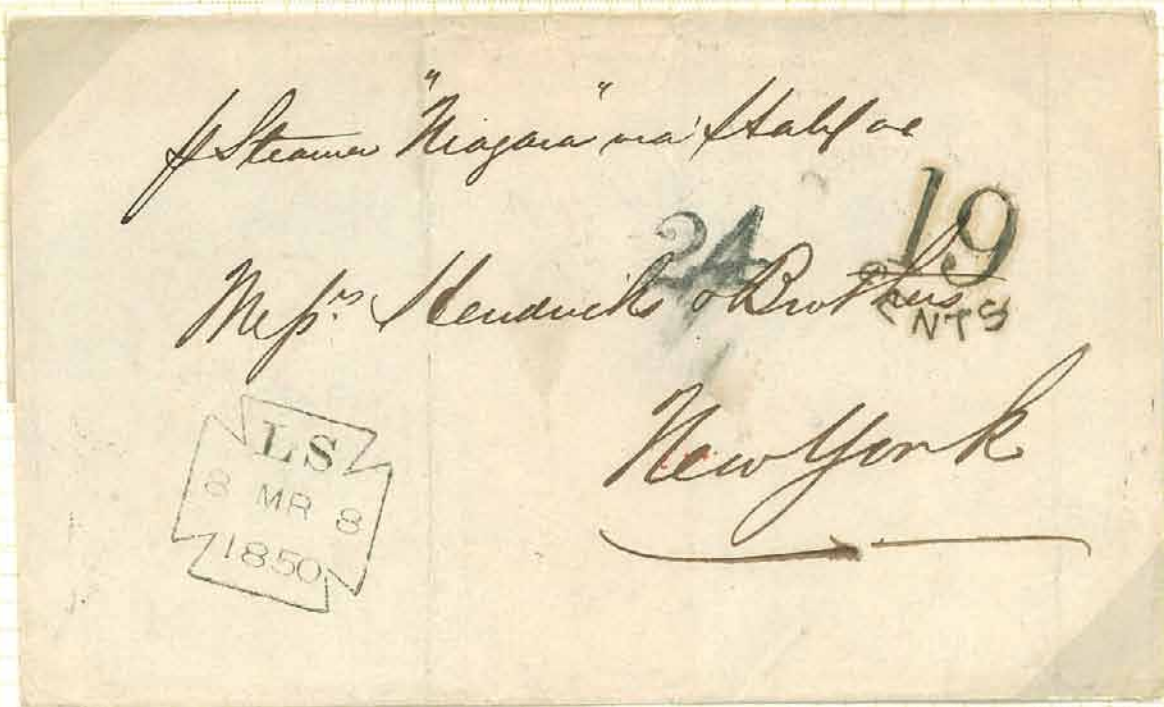 p Steamer "Niagara" via Halifax
24
19
CENTS
Messrs. Hendricks & Brothers
New York
LS
8 MR 8
1850